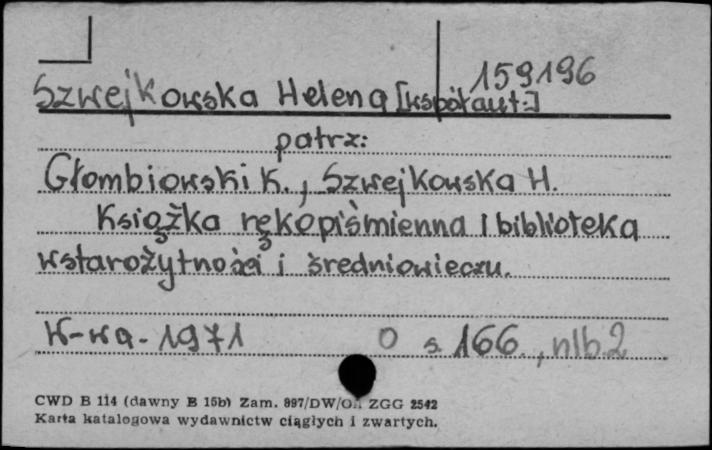 159196
Szwejkowska Helena [współaut.]
patrz:
Głombiowski K., Szwejkowska H.
Książka rękopiśmienna i biblioteka
w starożytności i średniowieczu.
W-wa - 1971 O s. 166., nlb. 2
CWD B 114 (dawny B 15b) Zam. 897/DW/Oł. ZGG 2542
Karta katalogowa wydawnictw ciągłych i zwartych.